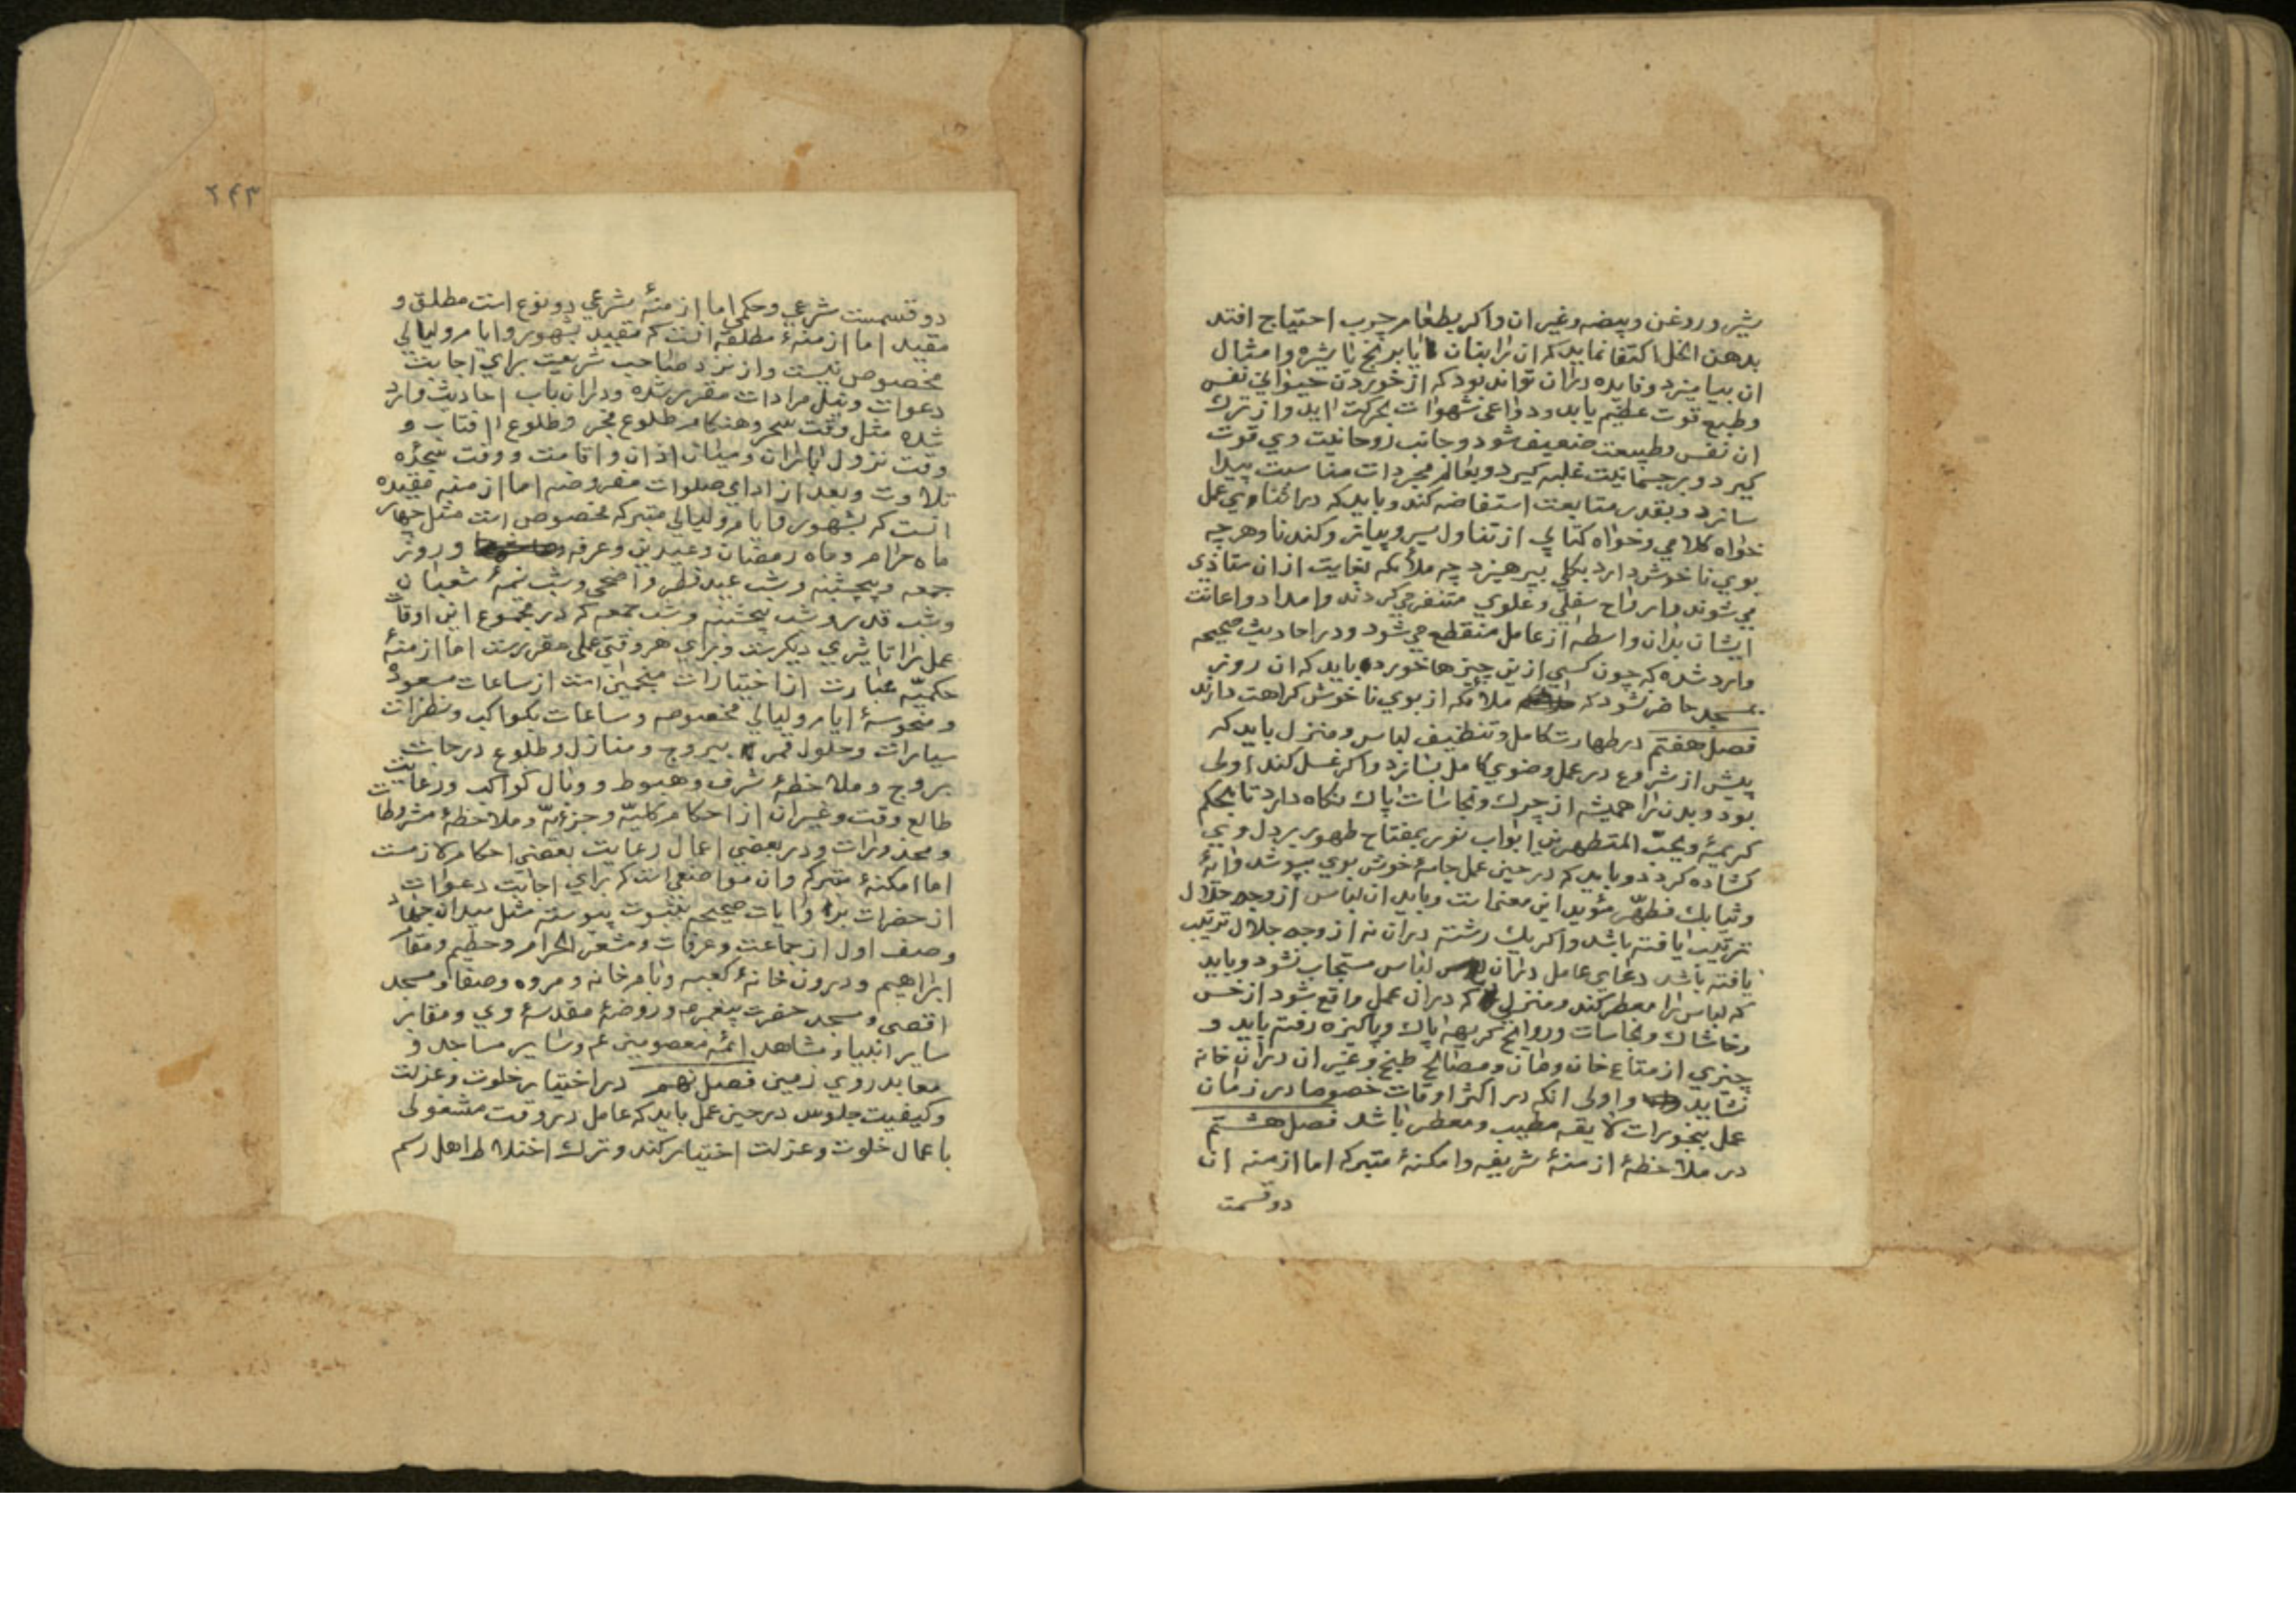 شیر و روغن و بیضه و غیر ان و اکر بطعام چرب احتیاج افتد
بدهن الخل اکتفا نماید که ان را بنان یا برنج یا شیره و امثال
ان بیامیزد و فایده دران تواند بود که از خوردن حیوانی نفس
وطبع قوت عظیم یابد و دواعی شهوات بحرکت اید و از ترک
ان نفس و طبیعت ضعیف شود و جانب روحانیت وی قوت
کیرد و بر جسمانیت غلبه کیرد و بعالم مجردات مناسبت پیدا
سازد و بقدر متابعت استفاضه کند و باید که در اثنا وی عمل
خواه کلامی و خواه کتابی از تناول سیر و پیاز و کندنا و هر چه
بوی ناخوش دارد بکلی بپرهیزد چه ملائکه بغایت ازان متاذی
می شوند و ارواح سفلی و علوی متنفر می کردند و امداد و اعانت
ایشان بدان واسطه از عامل منقطع می شود و در احادیث صحیحه
وارد شده که چون کسی ازین چیزها خورده باید که ان روز
بمسجد حاضر نشود که ملائکه از بوی ناخوش کراهت دارند
فصل هفتم در طهارت کامل و تنظیف لباس و منزل باید که
پیش از شروع در عمل وضوی کامل بسازد و اکر غسل کند اولی
بود و بدن را همیشه از چرک و نجاسات پاک نکاه دارد تا بحکم
کریمهٔ و یحبّ المتطهرین ابواب نور بمفتاح طهور بر دل وی
کشاده کردد و باید که در حین عمل جامهٔ خوش بوی بپوشد و ایهٔ
و ثیابک فطهّر مؤید این معنی است و باید ان لباس از وجه حلال
ترتیب یافته باشد و اکر یک رشته دران نه از وجه حلال ترتیب
یافته باشد دعای عامل دران لباس مستجاب نشود و باید
که لباس را معطر کند و منزلی که دران عمل واقع شود از خس
و خاشاک و نجاسات و روایح کریهه پاک و پاکیزه رفته باید و
چیزی از متاع خان و مان و مصالح طبخ و غیر ان دران خانه
نشاید و اولی انکه در اکثر اوقات خصوصا در زمان
عمل ببخورات لایقه مطیب و معطر باشد فصل هشتم
در ملاحظهٔ ازمنهٔ شریفه و امکنهٔ متبرکه اما ازمنه ان
دو قسمت
۲۴۳
دو قسمست شرعی و حکمی اما ازمنهٔ شرعی دو نوع است مطلق و
مقید اما ازمنهٔ مطلقه انست که مقید بشهور و ایام و لیالی
مخصوص نیست و از نزد صاحب شریعت برای اجابت
دعوات و نیل مرادات مقرر شده و دران باب احادیث وارد
شده مثل وقت سحر و هنکام طلوع فجر و طلوع افتاب و
وقت نزول باران و میان اذان و اقامت و وقت سجدهٔ
تلاوت و بعد از ادای صلوات مفروضه اما ازمنه مقیده
انست که بشهور و ایام و لیالی متبرکه مخصوص است مثل چهار
ماه حرام و ماه رمضان و عیدین و عرفه و روز
جمعه و پنجشنبه و شب عید فطر و اضحی و شب نیمهٔ شعبان
و شب قدر و شب پنجشنبه و شب جمعه که در مجموع این اوقات
عمل را تاثیری دیکرست و برای هر وقتی عملی مقررست اما ازمنهٔ
حکمیّه عبارت از اختیارات منجمین است از ساعات مسعوده
و منحوسهٔ ایام و لیالی مخصوصه و ساعات بکواکب و نظرات
سیارات و حلول قمر ببروج و منازل و طلوع درجات
بروج و ملاحظهٔ شرف و هبوط و وبال کواکب و رعایت
طالع وقت و غیر ان از احکام کلیّه و جزئیّه و ملاحظهٔ مشروطات
و محذورات و در بعضی اعمال رعایت بعضی احکام لازمست
اما امکنهٔ متبرکه و ان مواضعی است که برای اجابت دعوات
از حضرات بروایات صحیحه بثبوت پیوسته مثل میدان جهاد
و صف اول از جماعت و عرفات و مشعر الحرام و حطیم و مقام
ابراهیم و درون خانهٔ کعبه و بام خانه و مروه و صفا و مسجد
اقصی و مسجد حضرت پیغمبر ص و روضهٔ مقدسهٔ وی و مقابر
سایر انبیا و مشاهد ائمه معصومین ع م و سایر مساجد و
معابد روی زمین فصل نهم در اختیار خلوت و عزلت
و کیفیت جلوس در حین عمل باید که عامل در وقت مشغولی
باعمال خلوت و عزلت اختیار کند و ترک اختلاط اهل رسم